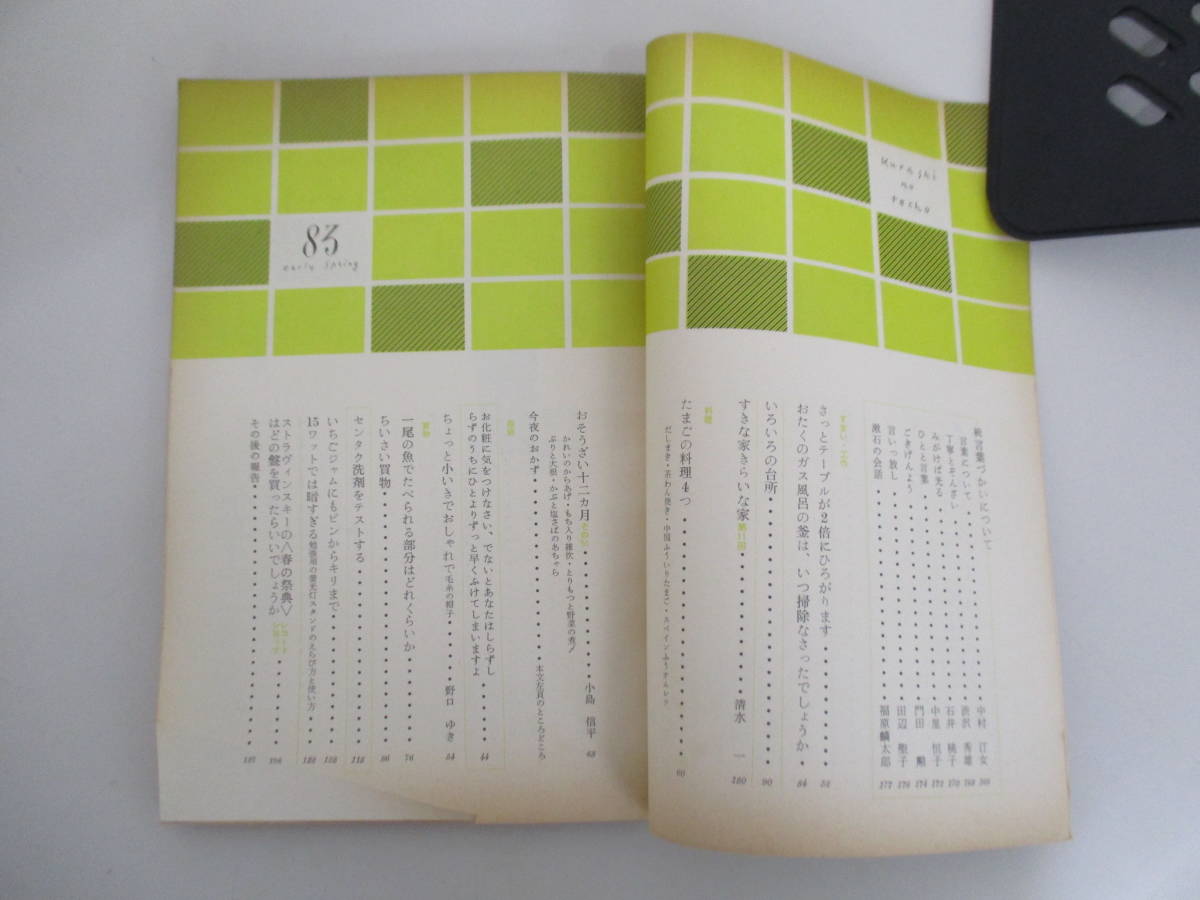 Kurashi
no
techo
続言葉づかいについて
言葉について 中村 汀女
丁寧とぞんざい 渋沢 秀雄
みがけば光る 石井 桃子
ひとと言葉 中里 恒子
ごきげんよう 門田 勲
言いっ放し 田辺 聖子 176
漱石の会話 福原麟太郎 177
すまい・工作
さっとテーブルが2倍にひろがります 52
おたくのガス風呂の釜は、いつ掃除なさったでしょうか 84
いろいろの台所 90
すきな家きらいな家 第11回 清水 一 180
料理
たまごの料理4つ 60
だしまき・茶わん焼き・中国ふういりたまご・スペインふうオムレツ
83
early spring
おそうざい十二カ月 小島 信平 68
かれいのからあげ・もち入り雑炊・とりもつと野菜の煮〆
ぶりと大根・かぶと塩さばのあちゃら
今夜のおかず 本文左頁のところどころ
お化粧に気をつけなさい、でないとあなたはしらずし
らずのうちにひとよりずっと早くふけてしまいますよ 44
ちょっと小いきでおしゃれで 毛糸の帽子 野口 ゆき 54
買物
一尾の魚でたべられる部分はどれくらいか 76
ちいさい買物 86
センタク洗剤をテストする 113
いちごジャムにもピンからキリまで
15ワットでは暗すぎる 勉強用の螢光灯スタンドのえらび方と使い方
ストラヴィンスキーの〈春の祭典〉
はどの盤を買ったらいいでしょうか レコード
その後の報告 187